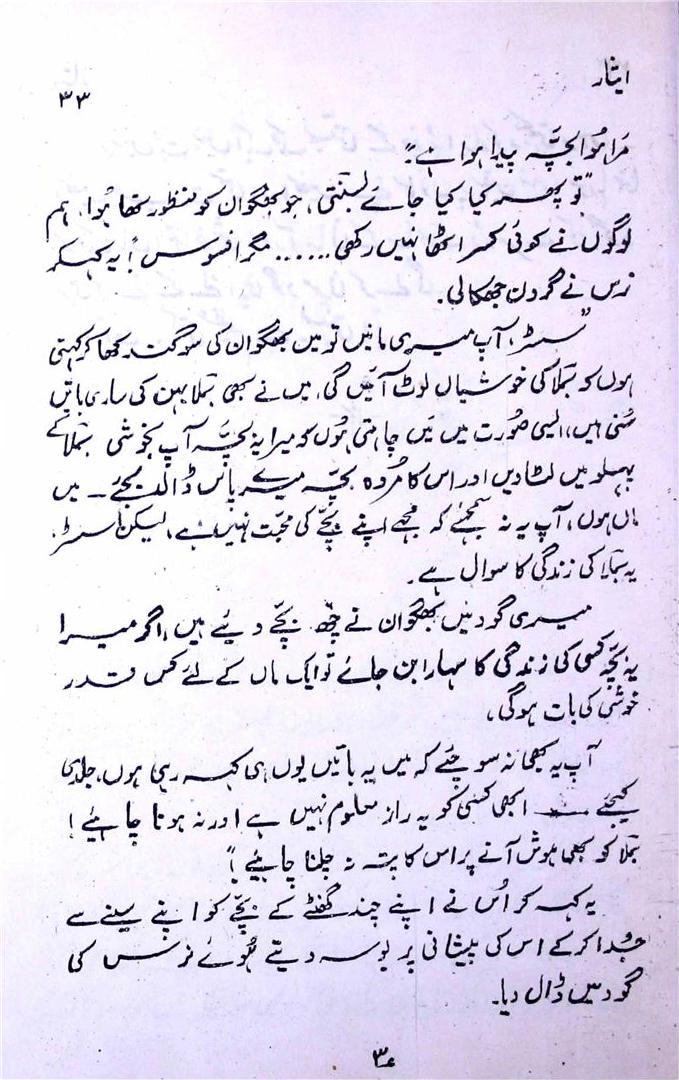 ایثار
۳۳
مَرا ہُوا بچّہ پیدا ہوا ہے"۔
"تو پھر کیا کیا جائے بسنتی، جو بھگوان کو منظور تھا ہُوا، ہم
لوگوں نے کوئی کسر اٹھا نہیں رکھی...... مگر افسوس! یہ کہکر
نرس نے گردن جھکالی۔
"سسٹر، آپ میری مانیں تو میں بھگوان کی سوگند رکھا کر کہتی
ہوں کہ بملا کی خوشیاں لوٹ آئیں گی، میں نے بھی بملا بہن کی ساری باتیں
سُنی ہیں، ایسی صُورت میں مَیں چاہتی ہُوں کہ میرا یہ بچّہ آپ بخوشی بملا کے
پہلو میں لٹا دیں اور اس کا مُردہ بچّہ میرے پاس ڈال دیجئے۔ میں
ماں ہوں، آپ یہ نہ سمجھئے کہ مجھے اپنے بچّے کی محبّت نہیں ہے، لیکن سسٹر،
یہ بملا کی زندگی کا سوال ہے۔
میری گود میں بھگوان نے چھ بچّے دیئے ہیں، اگر میرا
یہ بچّہ کسی کی زندگی کا سہارا بن جائے تو ایک ماں کے لئے کس قدر
خوشی کی بات ہوگی،
آپ یہ کبھی نہ سوچئے کہ میں یہ باتیں یوں ہی کہہ رہی ہوں، جلدی
کیجئے ــــ ابھی کسی کو یہ راز معلوم نہیں ہے اور نہ ہونا چاہیئے!
بملا کو بھی ہوش آنے پر اس کا پتہ نہ چلنا چاہیئے!"
یہ کہہ کر اُس نے اپنے چند گھنٹے کے بچّے کو اپنے سینے سے
جُدا کر کے اس کی پیشانی پر بوسہ دیتے ہُوئے نرس کی
گود میں ڈال دیا۔
۳ء